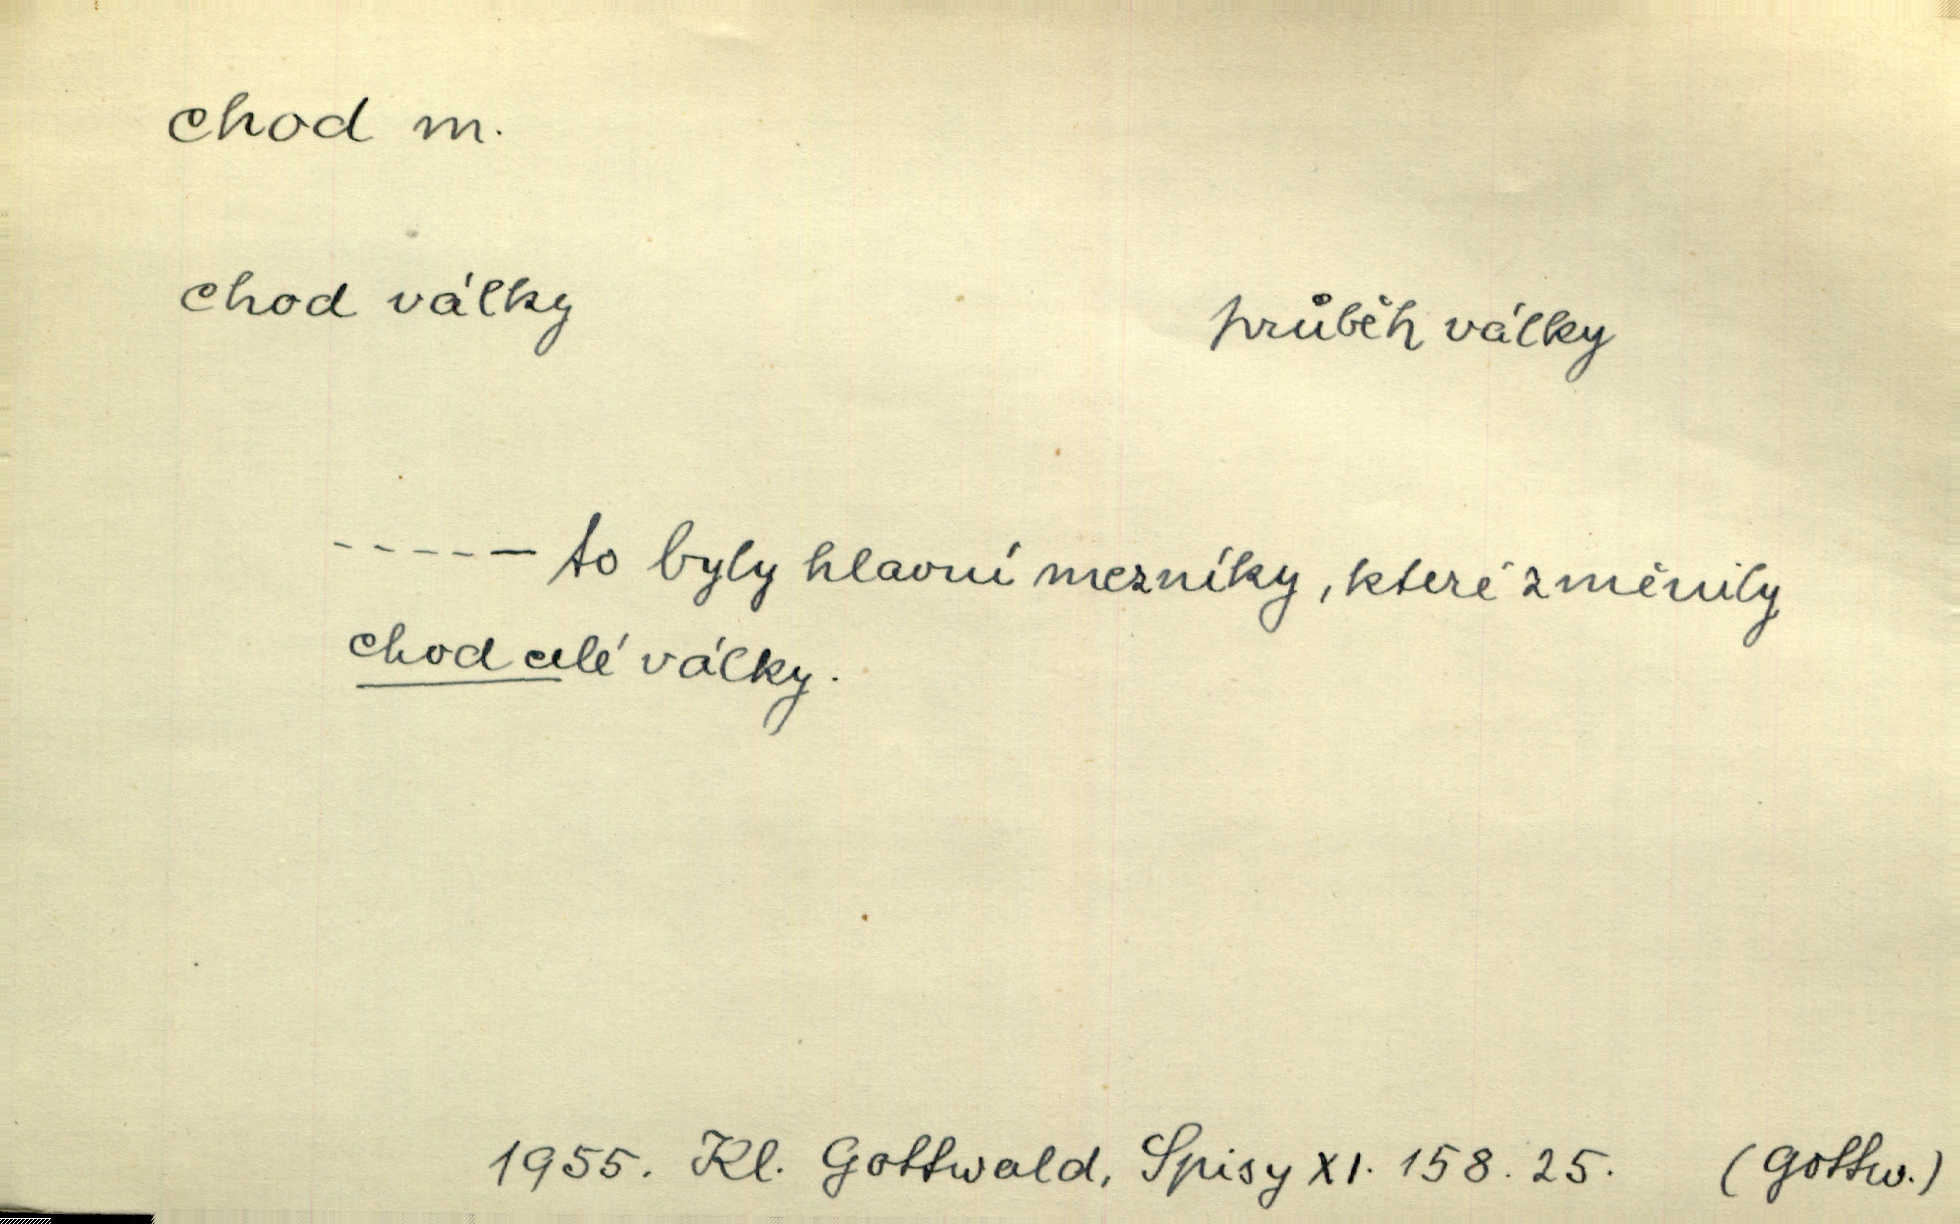 chod m.
chod války průběh války
- - - - — to byly hlavní mezníky, které změnily
chod celé války.
1955. Kl. Gottwald, Spisy XI. 158. 25. (Gottw.)